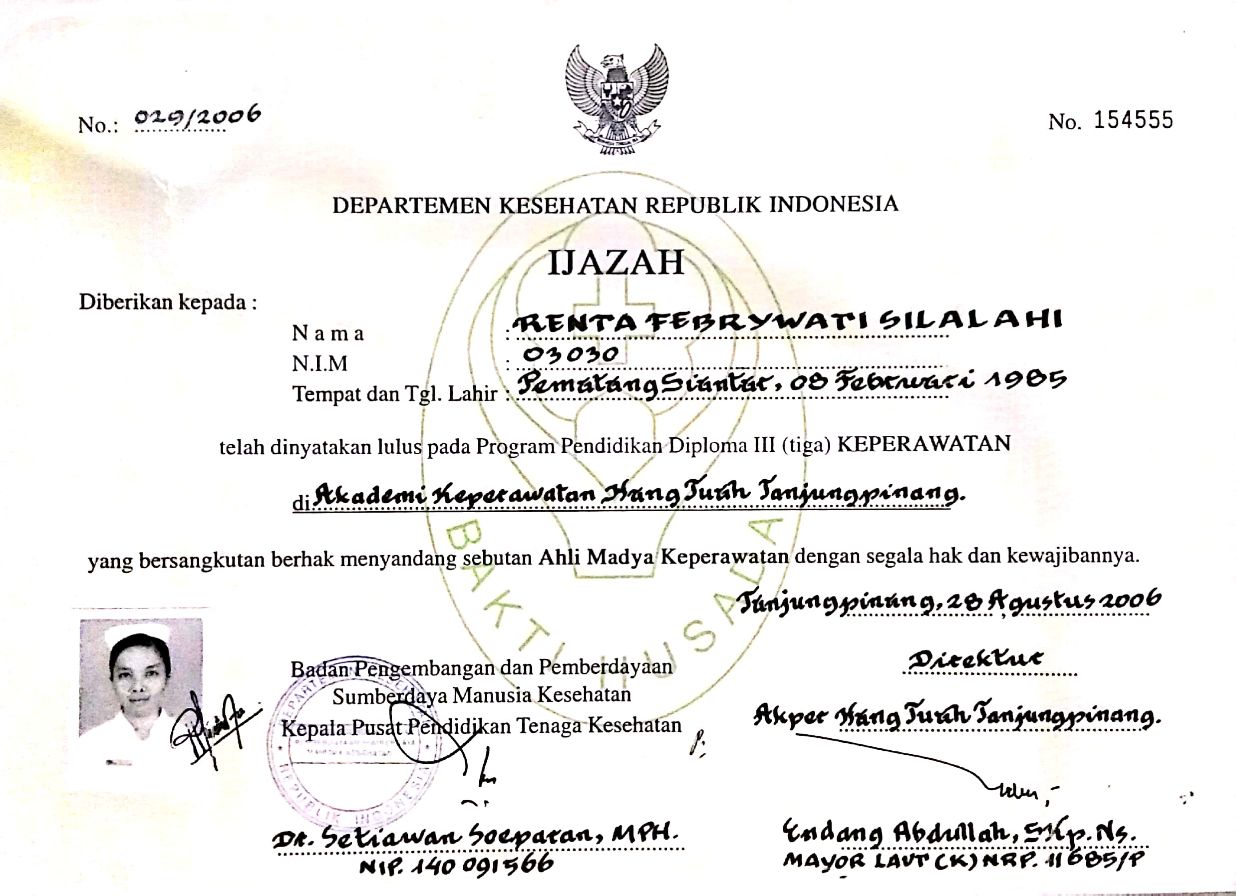 No.: 029/2006
No. 154555
DEPARTEMEN KESEHATAN REPUBLIK INDONESIA
IJAZAH
Diberikan kepada :
Nama : RENTA FEBRYWATI SILALAHI
N.I.M : 03030
Tempat dan Tgl. Lahir : Pematang Siantar, 08 Februari 1985
telah dinyatakan lulus pada Program Pendidikan Diploma III (tiga) KEPERAWATAN
di Akademi Keperawatan Hang Tuah Tanjungpinang.
yang bersangkutan berhak menyandang sebutan Ahli Madya Keperawatan dengan segala hak dan kewajibannya.
BAKTI HUSADA
Tanjungpinang, 28 Agustus 2006
Badan Pengembangan dan Pemberdayaan
Sumberdaya Manusia Kesehatan
Kepala Pusat Pendidikan Tenaga Kesehatan
Direktur
Akper Hang Tuah Tanjungpinang.
REPUBLIK INDONESIA
Dr. Setiawan Soeparan, MPH.
NIP. 140 091566
Endang Abdullah, SKp.Ns.
MAYOR LAUT (K) NRP. 11685/P